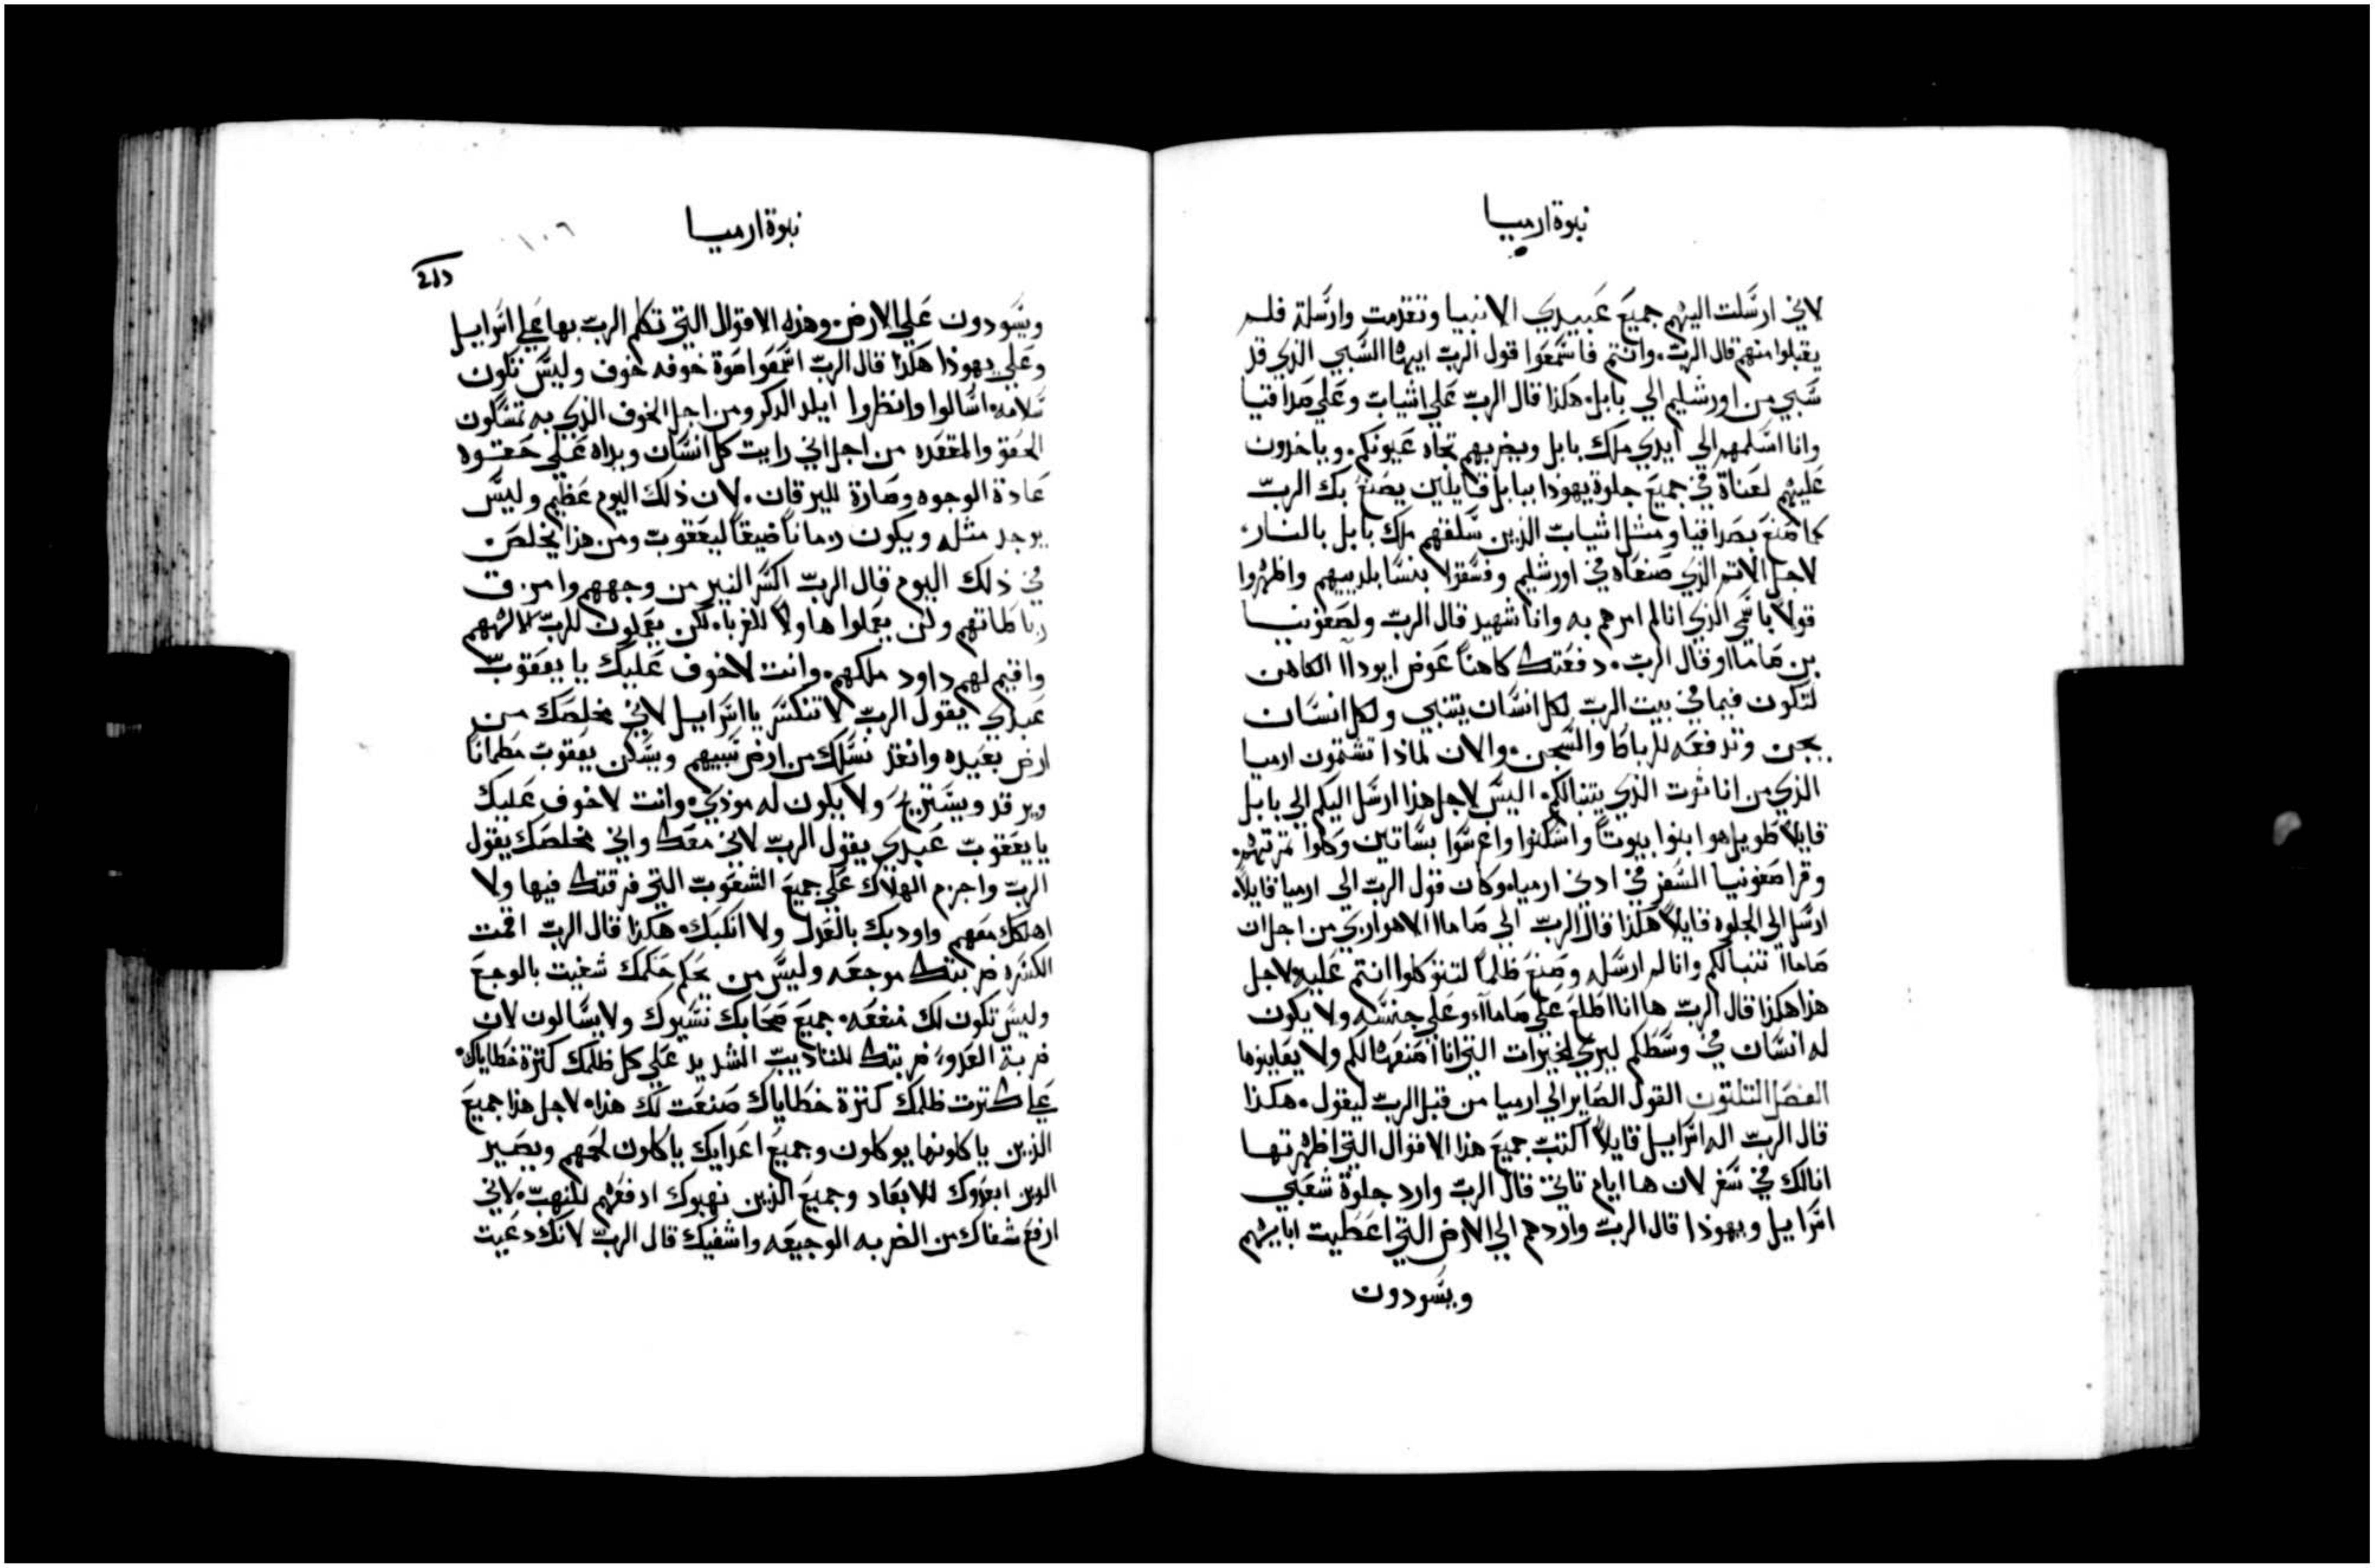 نبوة ارميا
لاني ارسلت اليهم جميع عبيدي الانبيا وتقدمت وارسلة فلم
يقبلوا منهم قال الرب. وانتم فاسمعوا قول الرب ايها السبي الذي قد
سبي من اورشليم الي بابل. هكذا قال الرب علي اشيات وعلي صداقيا
وانا اسلمهم الي ايدي ملك بابل ويضربهم تجاه عيونكم. وياخذون
عليهم لعناة في جميع جلوة يهوذا ببابل قايلين يصنع بك الرب
كما صنع بصداقيا ومثل اشيات الذين سلقهم ملك بابل بالنار.
لاجل الاتم الذي صنعاه في اورشليم وفسقوا بنسا بلدييهم واظهروا
قولاً باسمي الذي انا لم امرهم به وانا شهيد قال الرب ولصفونيا
بن ماماا وقال الرب. دفعتك كاهناً عوض ايوداا الكاهن
لتكون فيما في بيت الرب لكل انسان يتنبي ولكل انسان
يجن وتدفعه للرباط والسجن. والان لماذا تشتمون ارميا
الذي من اناثوت الذي يتنبالكم. اليس لاجل هذا ارسل اليكم الي بابل
قايلاً طويل هو ابنوا بيوتاً واسكنوا واغرسوا بساتين وكلوا ثمرتهم.
وقرا صفونيا السفر في ادني ارميا. وكان قول الرب الي ارميا قايلاً.
ارسل الي الجلوه قايلاً هكذا قال الرب الي ماماا الاهواري من اجل ان
ماماا تنبالكم وانا لم ارسله وصنع ظلماً لتتوكلوا انتم عليه. لاجل
هذا هكذا قال الرب ها انا اطلع علي ماماا. وعلي جنسه ولا يكون
له انسان في وسطكم ليري الخيرات التي انا اصنعها لكم ولا يعاينوها
الفصل التلتون القول الصاير الي ارميا من قبل الرب ليقول. هكذا
قال الرب اله اسراييل قايلاً اكتب جميع هذا الاقوال التي اظهرتها
انا لك في سفر لان ها ايام تاتي قال الرب وارد جلوة شعبي
اسراييل ويهوذا قال الرب واردهم الي الارض التي اعطيت اباييهم
ويسودون
نبوة ارميا
١٠٦
ويسودون علي الارض. وهذه الاقوال التي تكلم الرب بها علي اسراييل
وعلي يهوذا هكذا قال الرب اسمعوا صوة خوفه خوف وليس تكون
سلامه. اسالوا وانظروا ايلد الدكر ومن اجل الخوف الذي به تمسكون
الحقو والمقعده من اجل اني رايت كل انسان ويداه علي حقوه
عادة الوجوه وصارة لليرقان. لان ذلك اليوم عظيم وليس
يوجد مثله ويكون زماناً ضيقاً ليعقوب ومن هذا يخلص.
في ذلك اليوم قال الرب اكسر النير من وجههم وامزق
رباطاتهم ولن يعملوا هاولا للغربا. لكن يعملون للرب الاههم
واقيم لهم داود ملكهم. وانت لاخوف عليك يا يعقوب
عبدي يقول الرب لا تنكسر يا اسراييل لاني مخلصك من
ارض بعيده وانقذ نسلك من ارض سبيهم ويسكن يعقوب مطماناً
ويرقد ويستريح ولا يكون له موذي. وانت لاخوف عليك
يا يعقوب عبدي يقول الرب لاني معك واني مخلصك يقول
الرب واجزم الهلاك علي جميع الشعوب التي فرقتك فيها ولا
اهلكك معهم واودبك بالعدل ولا انكبك. هكذا قال الرب اقمت
الكسره ضربتك موجعه وليس من يحكم حكمك شفيت بالوجع
وليس تكون لك منفعه. جميع صحابك نسيوك ولا يسالون لان
ضربة العدو. ضربتك للتاديب الشديد علي كل ظلمك كترة خطاياك.
علي كترت ظلمك كترة خطاياك صنعت لك هذا. لاجل هذا جميع
الذين ياكلونها يوكلون وجميع اعدايك ياكلون لحمهم ويصير
الدين ابعدوك للابعاد وجميع الذين نهبوك ادفعهم للنهب. لاني
ارفع شفاك من الضربه الوجيعه واشفيك قال الرب لانك دعيت